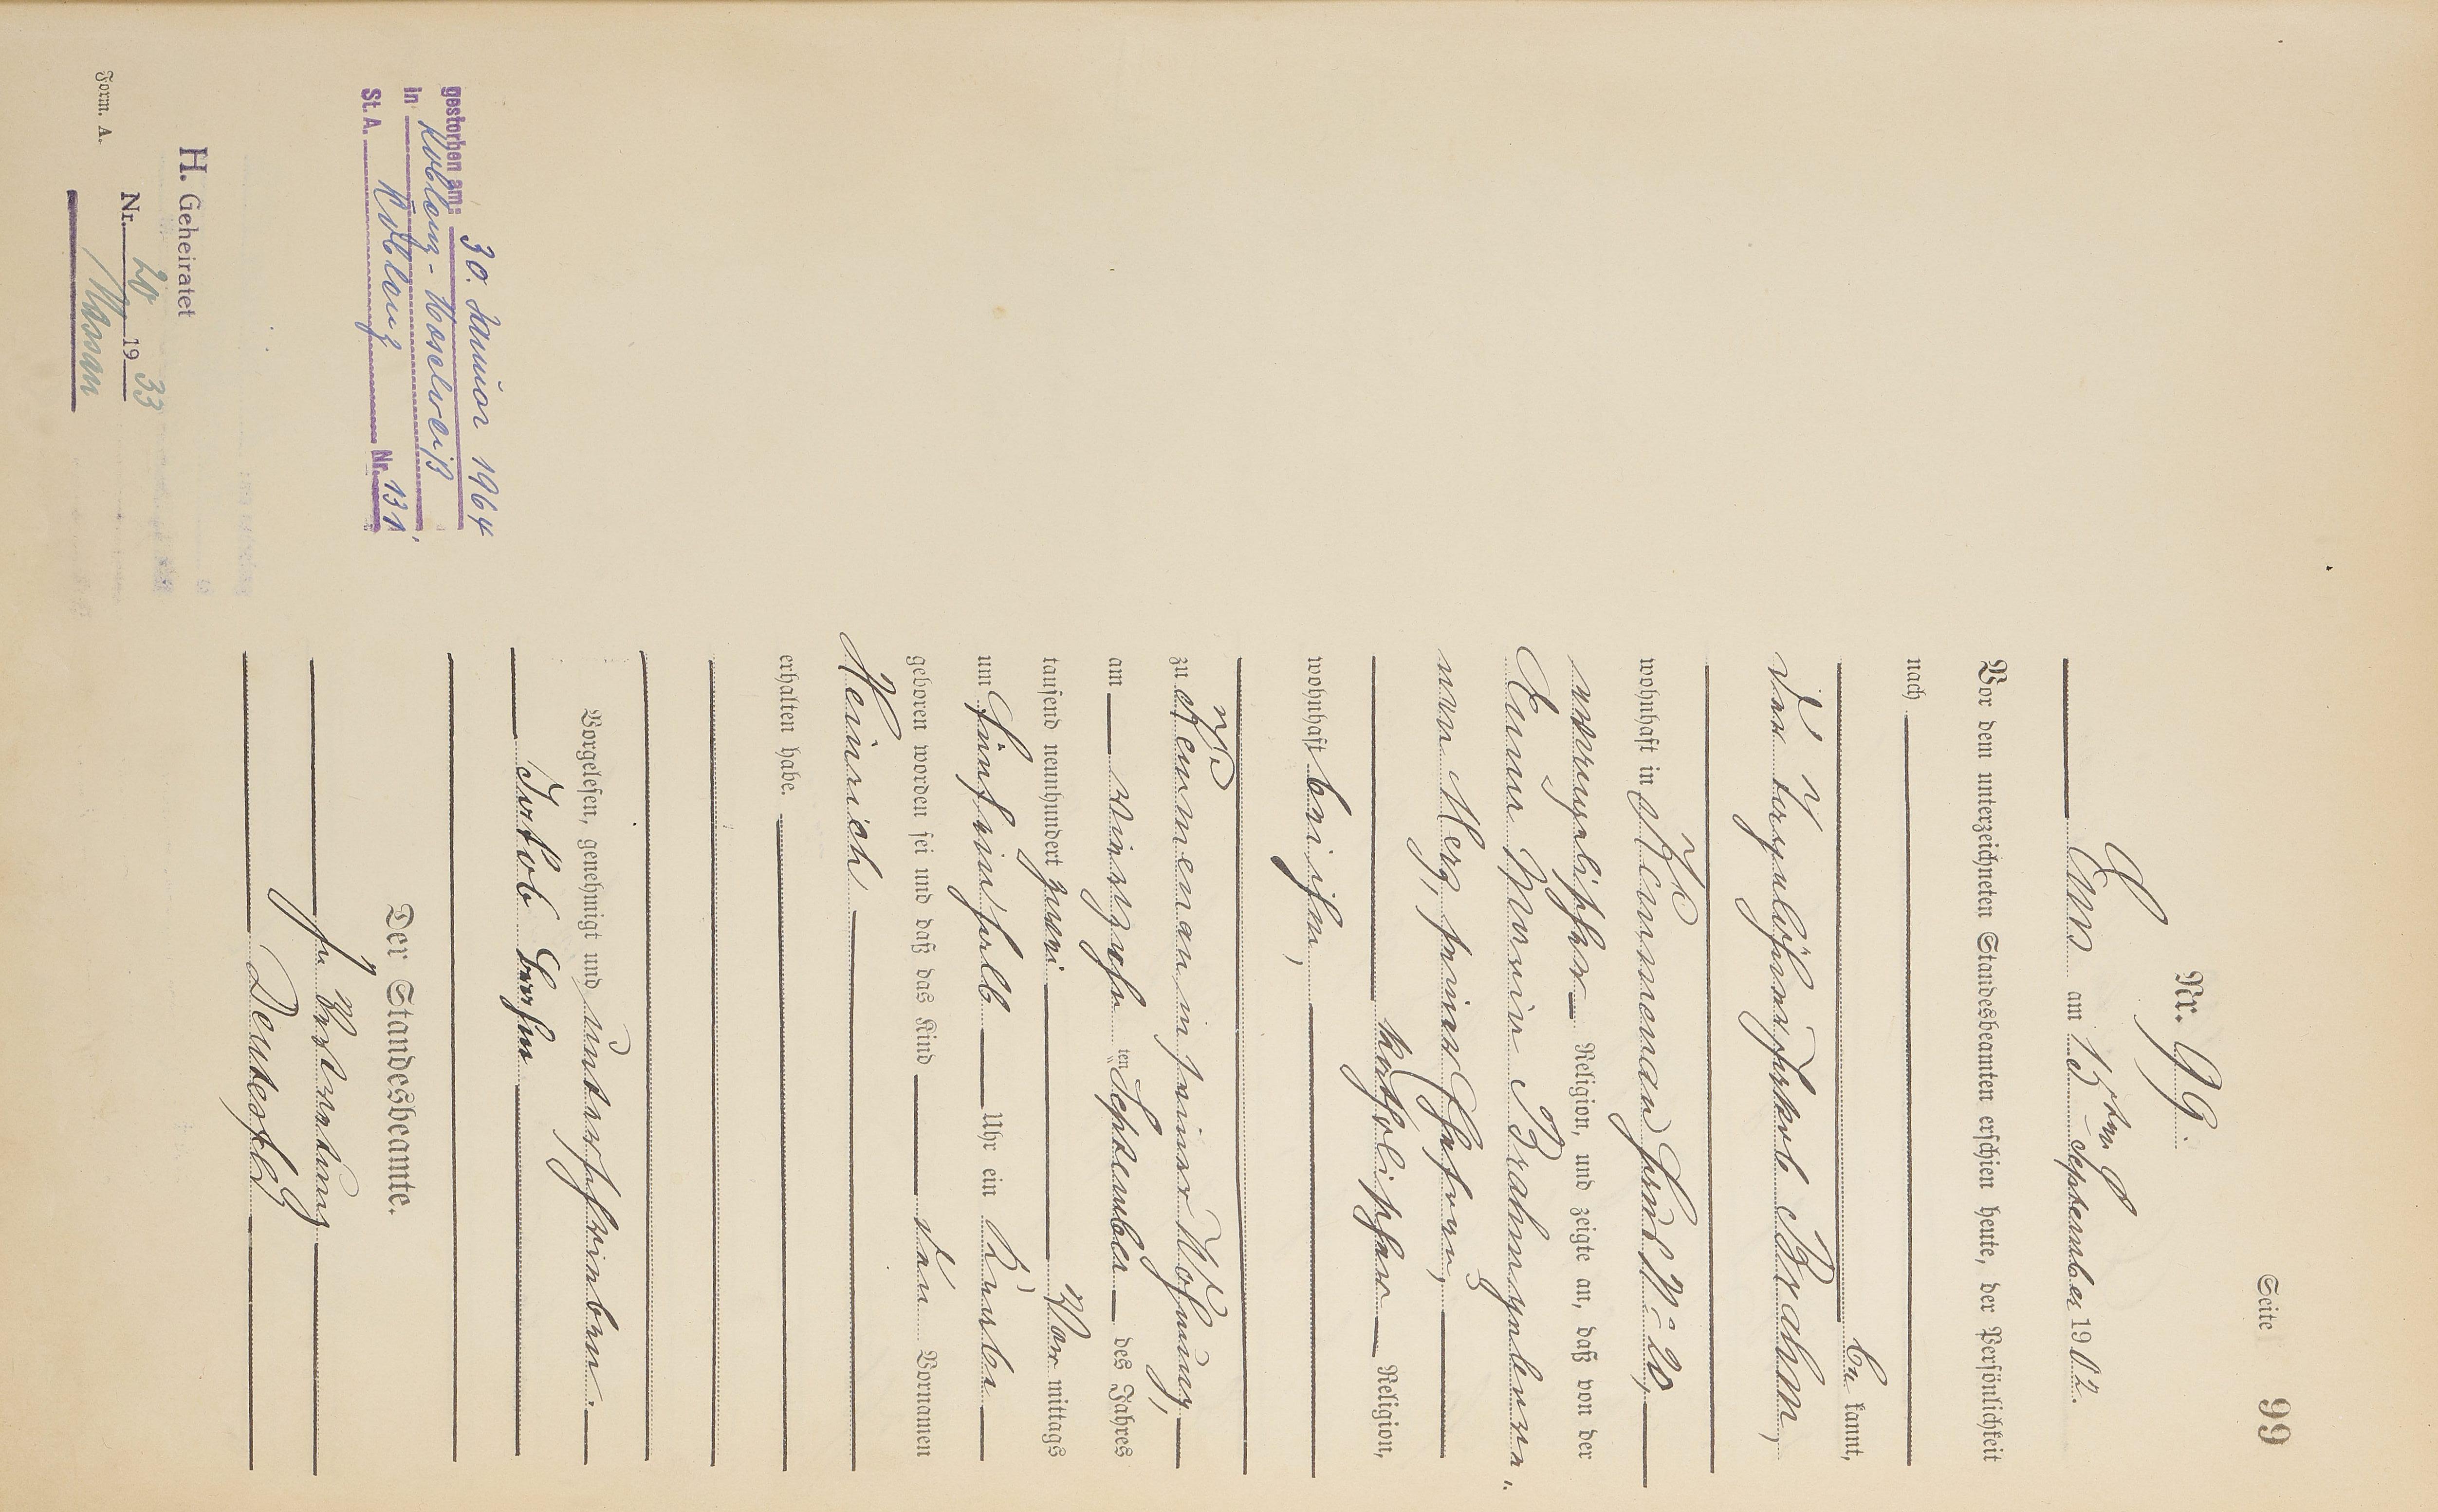 Seite 99
Nr. 99.
Ems am 15ten September 1902.
Vor dem unterzeichneten Standesbeamten erschien heute, der Persönlichkeit
nach
be kannt,
der Tagelöhner Jakob Brahm,
wohnhaft in Kemmenau Haus No 20,
evangelischer Religion, und zeigte an, daß von der
Anna Maria Brahm geborene
Merz, seiner Ehefrau,
katholischer Religion,
wohnhaft bei ihm,
zu Kemmenau in seiner Wohnung,
am vierzehn ten September des Jahres
tausend neunhundert zwei Vor mittags
um fünfeinhalb Uhr ein Knabe
geboren worden sei und daß das Kind den Vornamen
Heinrich
erhalten habe.
Vorgelesen, genehmigt und unterschrieben.
Jakob Brahm
Der Standesbeamte.
In Vertretung
gestorben am: 30. Januar 1964
Koblenz-Moselweiß
in
St. A. Koblenz Nr. 131
H. Geheiratet
Nr. 20 19 33
Nassau
Form. A.